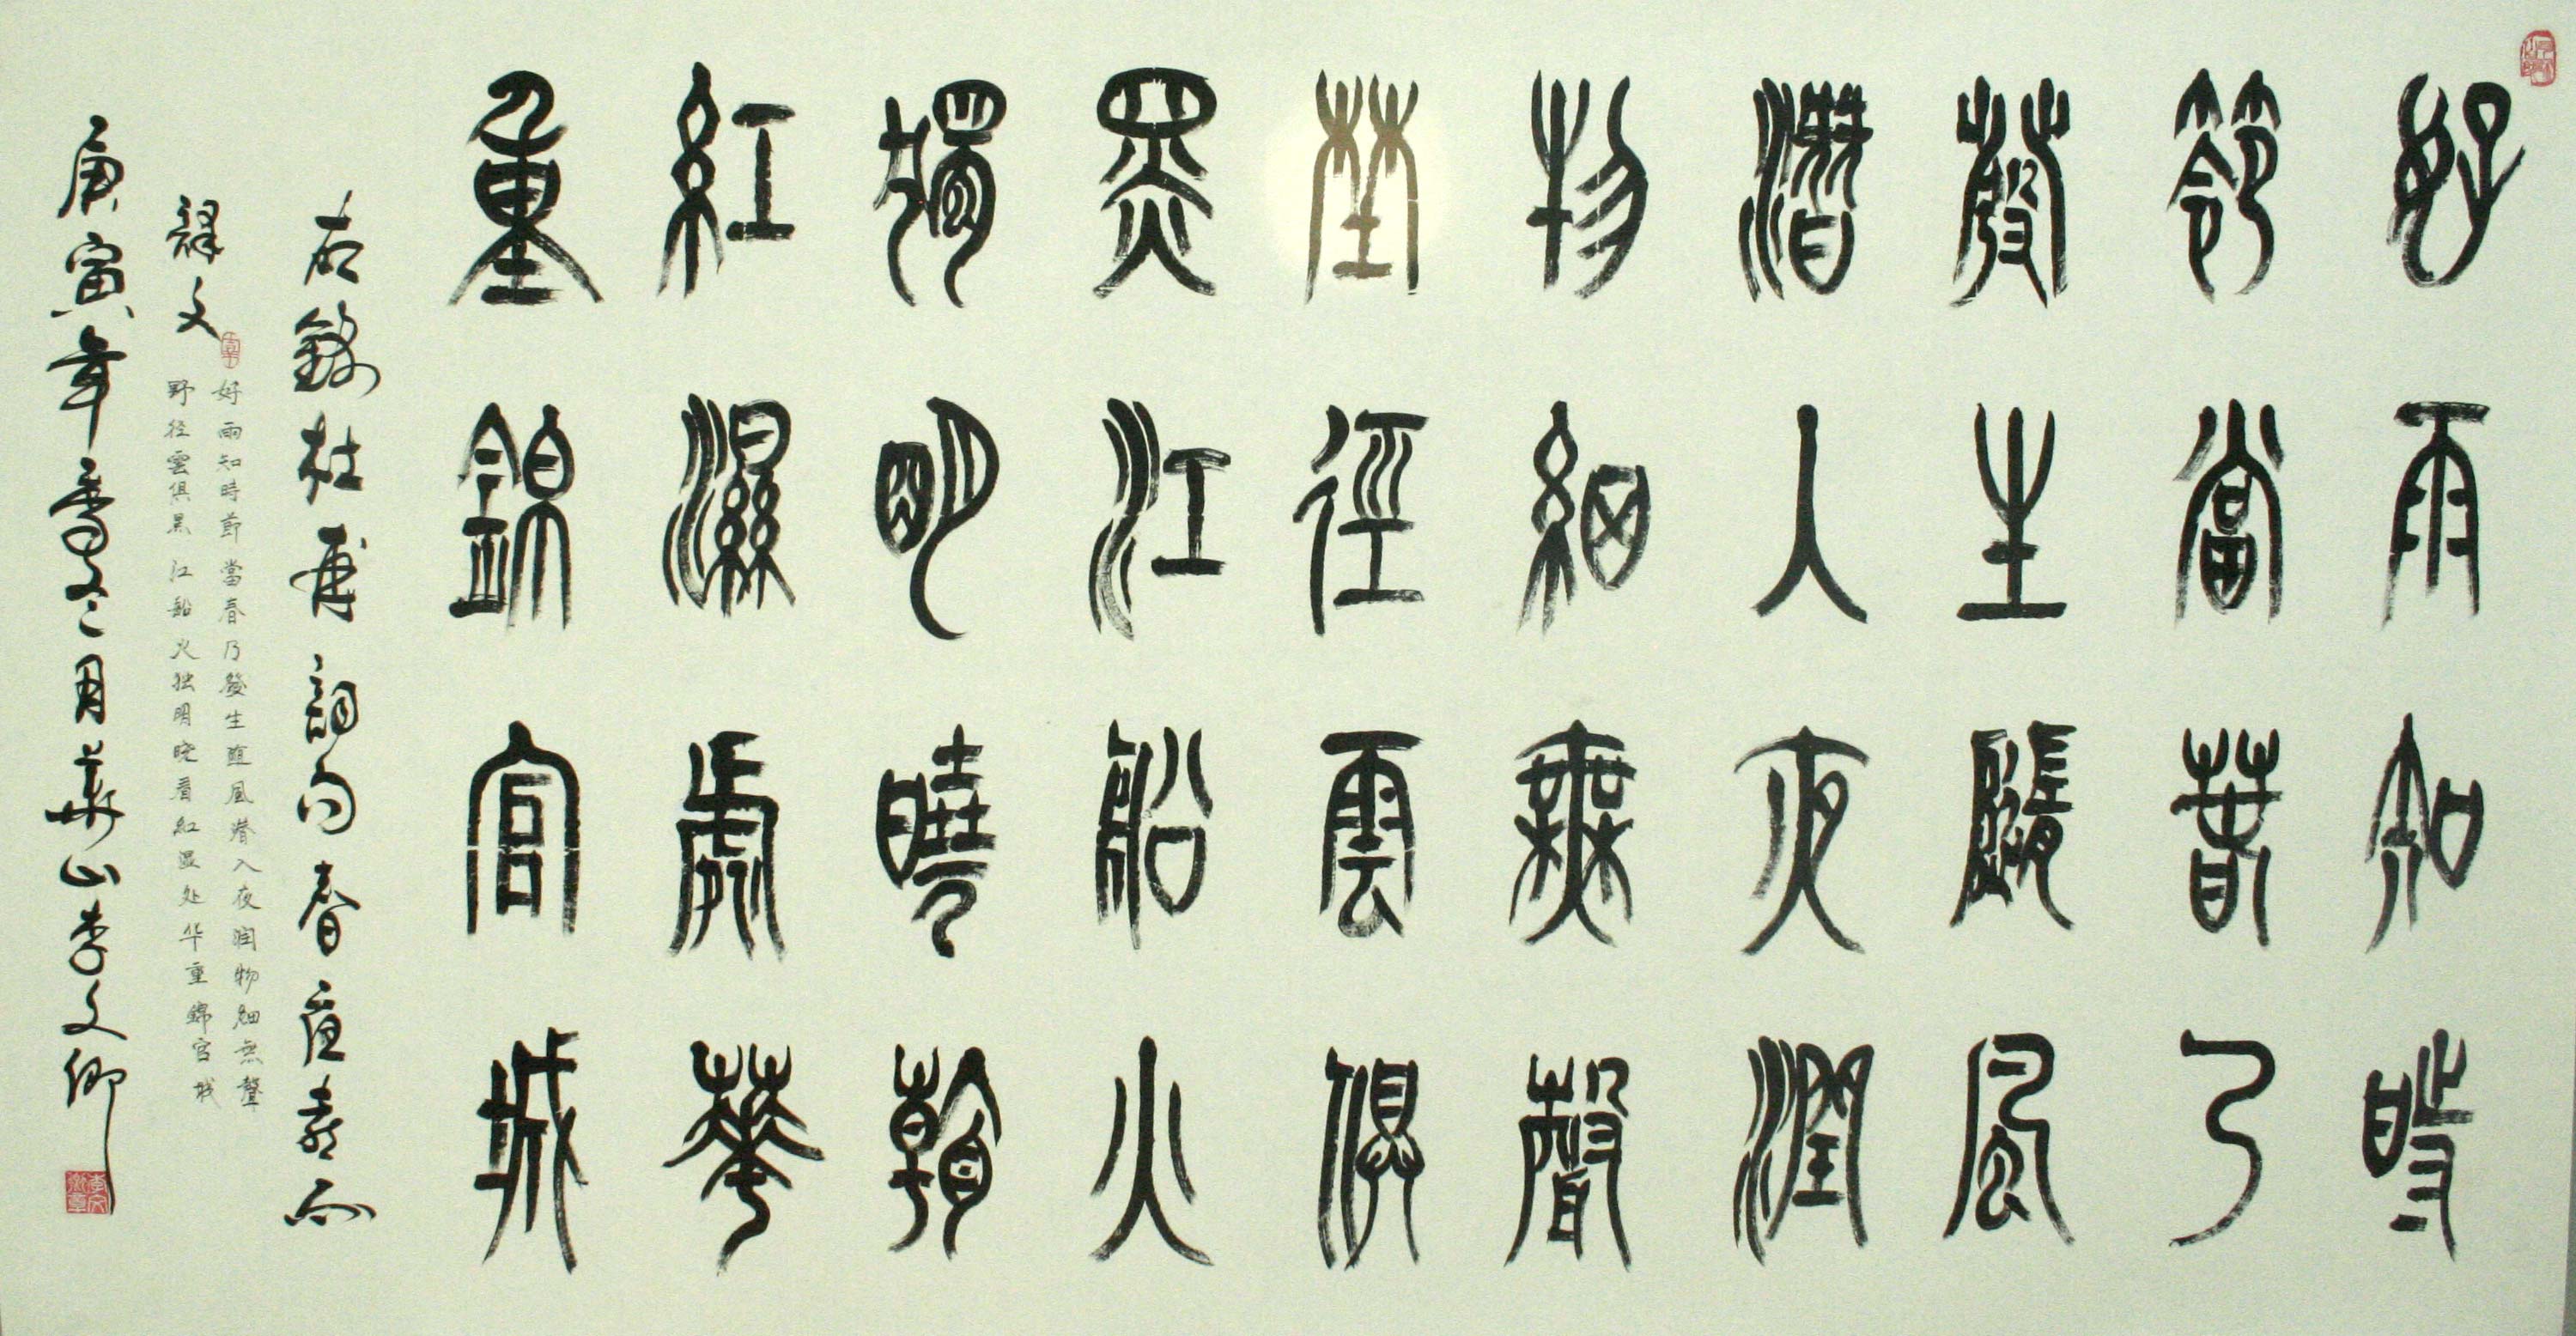 好雨知時
節當春乃
發生隨風
潛入夜潤
物細無聲
埜徑雲俱
黑江船火
獨明曉看
紅濕處華
重錦官城
右錄杜甫詞句春夜喜雨
釋文
好雨知時節當春乃發生隨風潛入夜潤物細無聲
野径雲俱黑江船火独明晓看紅湿处华重錦官城
庚寅年冬月華山李文卿